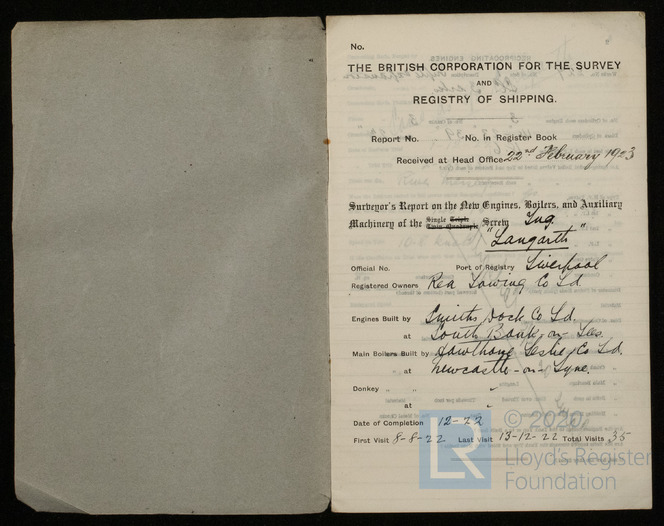 No.
THE BRITISH CORPORATION FOR THE SURVEY
AND
REGISTRY OF SHIPPING.
Report No. No. in Register Book
Received at Head Office 22nd February 1923
Surveyor's Report on the New Engines, Boilers, and Auxiliary
Machinery of the Single Triple Twin Quadruple Screw Tug
"Langarth"
Official No. Port of Registry Liverpool
Registered Owners Rea Towing Co Ld
Engines Built by Smiths Dock Co Ld.
at South Bank-on-Tees.
Main Boilers Built by Hawthorn Leslie & Co Ld.
at Newcastle-on-Tyne.
Donkey " " "
at "
Date of Completion 12-22
First Visit 8-8-22 Last Visit 13-12-22 Total Visits 35
LR © 2020
Lloyd's Register
Foundation